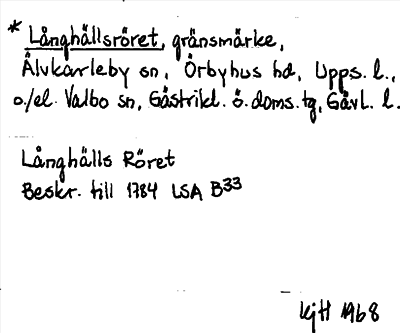 * Långhällsröret, gränsmärke,
Älvkarleby sn, Örbyhus hd, Upps. l.,
o./el. Valbo sn, Gästrikl. ö. doms. tg, Gävl. l.
Långhälls Röret
Beskr. till 1784 LSA B33
KjH 1968